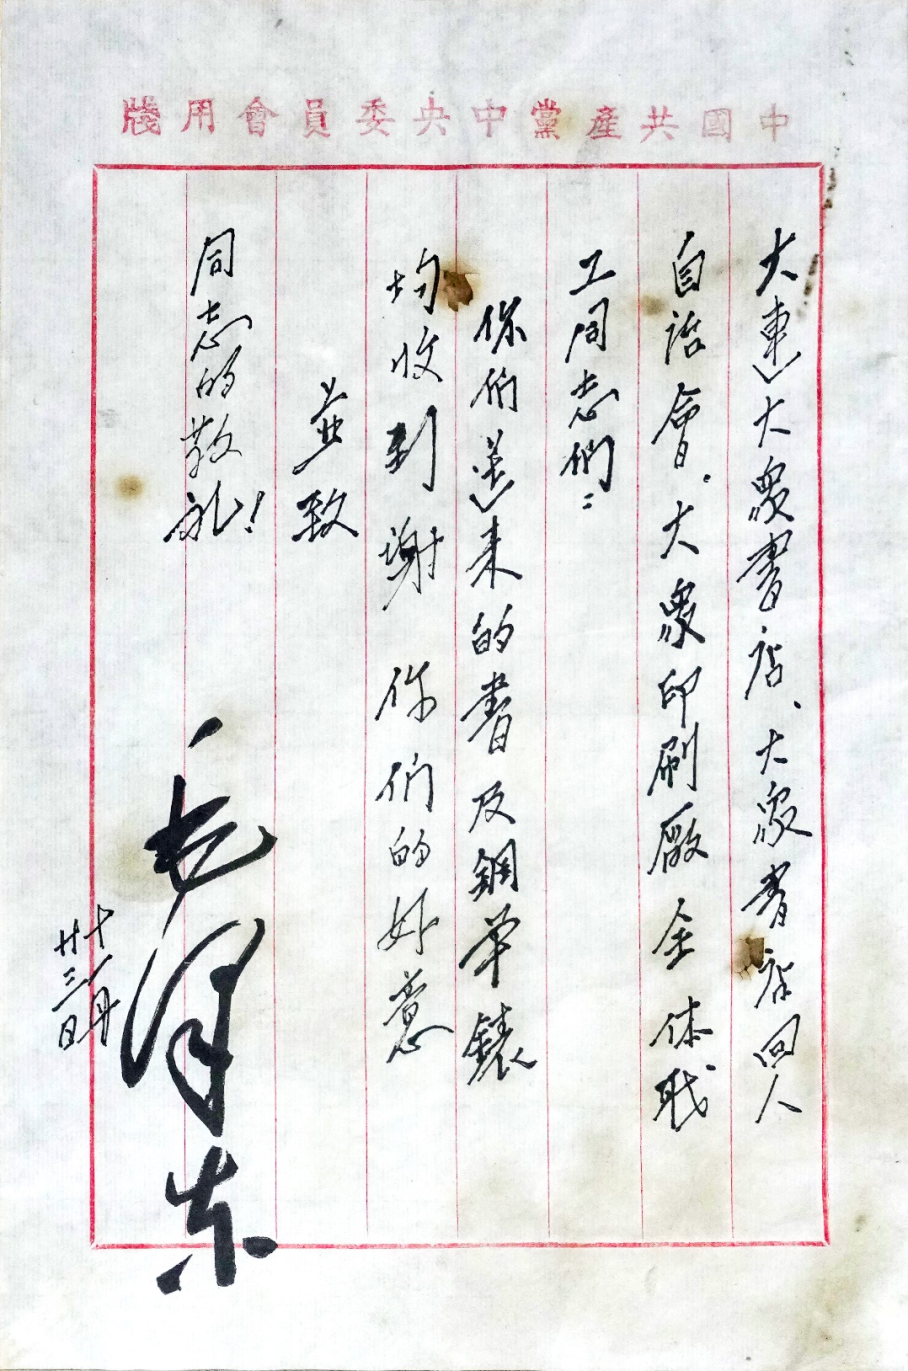 中國共產黨中央委員會用牋
大連大眾書店、大眾書店同人
自治會、大眾印刷廠全体职
工同志們：
你们送来的書及鋼笔錶
均收到謝你们的好意
並致
同志的敬礼！
毛澤东
十一月
廿三日